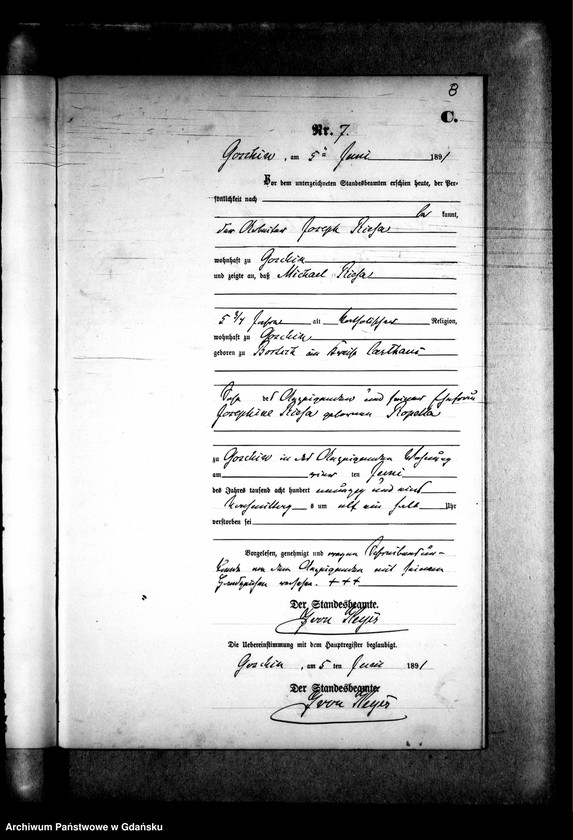 8
C.
Nr. 7.
Goschin, am 5 ten Juni 1891
Vor dem unterzeichneten Standesbeamten erschien heute, der Per-
sönlichkeit nach
be kannt,
der Arbeiter Joseph
wohnhaft zu Goschin
und zeigte an, daß Michael
5 3/4 Jahre alt katholischer Religion,
wohnhaft zu Goschin
geboren zu im Kreise Carthaus
Sohn des Anzeigenden und seiner Ehefrau
Josephine geborenen
zu Goschin in des Anzeigenden Wohnung
am ten Juni
des Jahres tausend acht hundert neunzig und eins
Nachmittags s um elf ein halb Uhr
verstorben sei
Vorgelesen, genehmigt und wegen Schreibensun-
kunde von dem Anzeigenden mit seinem
Handzeichen versehen. +++
Der Standesbeamte.
Die Uebereinstimmung mit dem Hauptregister beglaubigt.
Goschin, am 5 ten Juni 1891
Der Standesbeamte
Archiwum Państwowe w Gdańsku